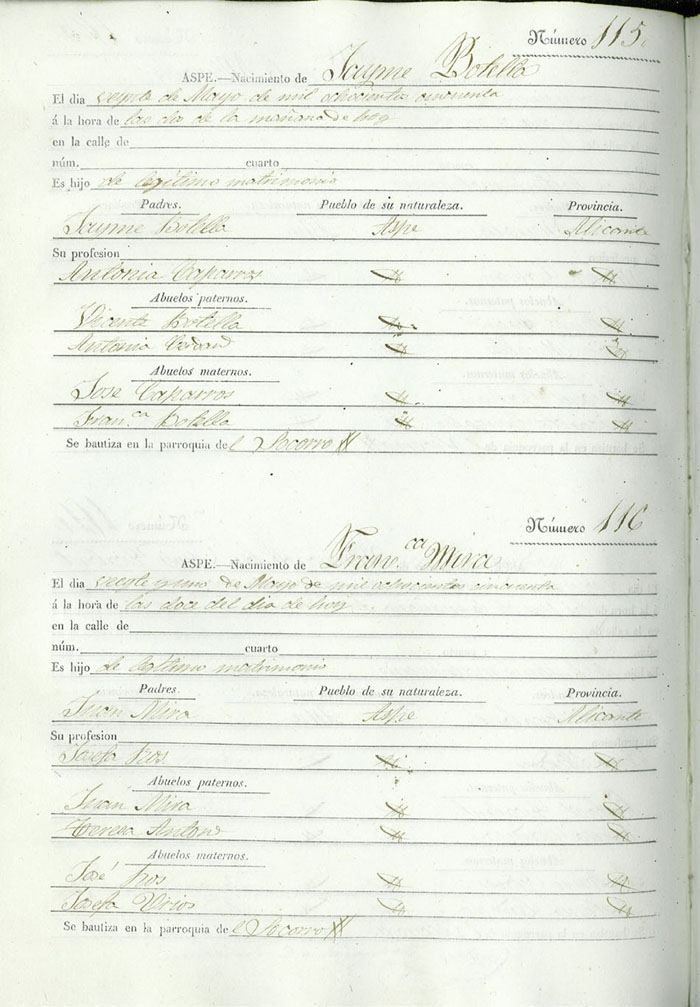 Número 115
ASPE.—Nacimiento de Jayme Botella
El dia veynte de Mayo de mil ochocientos cincuenta
á la hora de las dos de la mañana de hoy
en la calle de
núm. cuarto
Es hijo de legitimo matrimonio
Padres. Pueblo de su naturaleza. Provincia.
Jayme Botella Aspe Alicante
Su profesion
Antonia Caparros
Abuelos paternos.
Vicente Botella
Antonia
Abuelos maternos.
Jose Caparros
Fran.ca Botella
Se bautiza en la parroquia del Socorro
Número 116
ASPE.—Nacimiento de Fran.ca Mira
El dia veinte y uno de Mayo de mil ochocientos cincuenta
á la hora de las doce del dia de hoy
en la calle de
núm. cuarto
Es hijo de matrimonio
Padres. Pueblo de su naturaleza. Provincia.
Juan Mira Aspe Alicante
Su profesion
Josefa
Abuelos paternos.
Juan Mira
Teresa Anton
Abuelos maternos.
José
Josefa
Se bautiza en la parroquia del Socorro